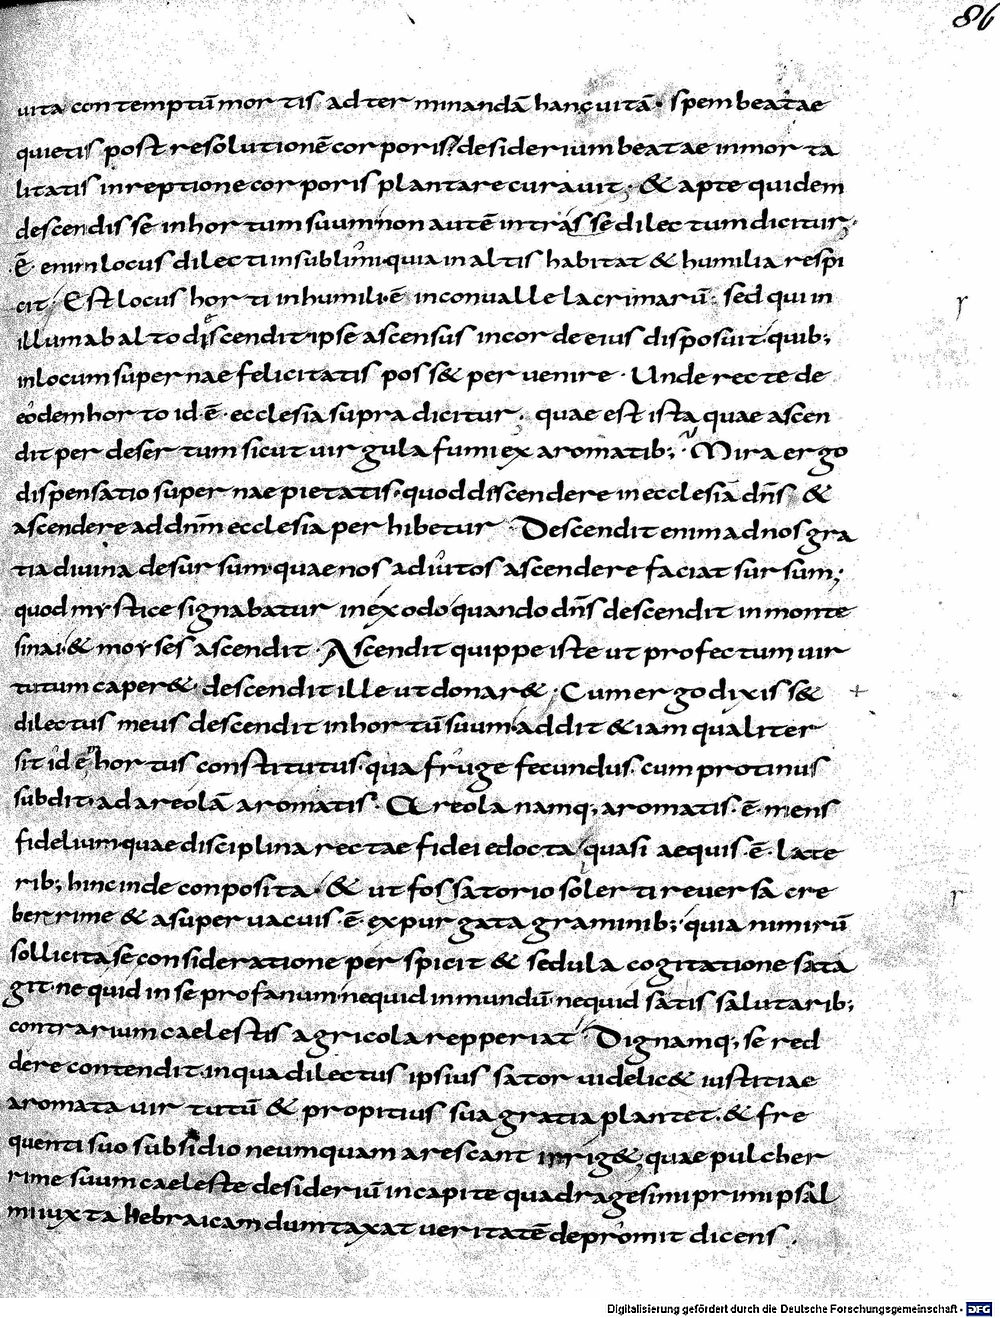 86
uita contemptū mortis ad terminandā hanc uitā · spem beatae
quietis post resolutionē corporis desiderium beatae inmorta
litatis in reptione corporis plantare curauit · & apte quidem
descendisse in hortum suum non autē intrasse dilectum dicitur ·
· ē · enim locus dilecti in sublimi quia in altis habitat & humilia respi
cit · Est locus horti in humili · ē · in conualle lacrimarū · sed qui in
illum ab alto descendit ipse ascensus in corde eius disposuit quib;
in locum supernae felicitatis poss& peruenire · Unde recte de
eodem horto id · ē · ecclesia supra dicitur · quae est ista quae ascen
dit per desertum sicut uirgula fumi ex aromatib; Mira ergo
dispensatio supernae pietatis · quod discendere in ecclesiā dn̄s &
ascendere ad dnm̄ ecclesia perhibetur · Descendit enim ad nos gra
tia diuina desursum · quae nos adiutos ascendere faciat sursum;
quod mystice signabatur in exodo quando dn̄s descendit in monte
sinai · & moyses ascendit · Ascendit quippe iste ut profectum uir
tutum caper& · descendit ille ut donar& · Cum ergo dixiss& +
dilectus meus descendit in hortū suum addit & iam qualiter
sit id ē hortus constitutus · qua fruge fecundus · cum protinus
subdit · ad areolā aromatis · Areola namq; aromatis · ē · mens
fidelium quae disciplina rectae fidei edocta quasi aequis · ē · late
rib; hinc inde conposita · & ut fossatorio solerti reuersa cre
berrime & a superuacuis · ē · expurgata graminib; quia nimirū
sollicita se consideratione perspicit & sedula cogitatione sata
git · ne quid in se profanum nequid inmundū nequid satis salutarib;
contrarium caelestis agricola repperiat · Dignamq; se red
dere contendit in qua dilectus ipsius sator uidelic& iustitiae
aromata uirtutū & propitius sua gratia plantet · & fre
quenti suo subsidio ne umquam arescant inrig& quae pulcher
rime suum caeleste desideriū in capite quadragesimi primi psal
mi iuxta hebraicam dumtaxat ueritatē depromit dicens ·
Digitalisierung gefördert durch die Deutsche Forschungsgemeinschaft - DFG